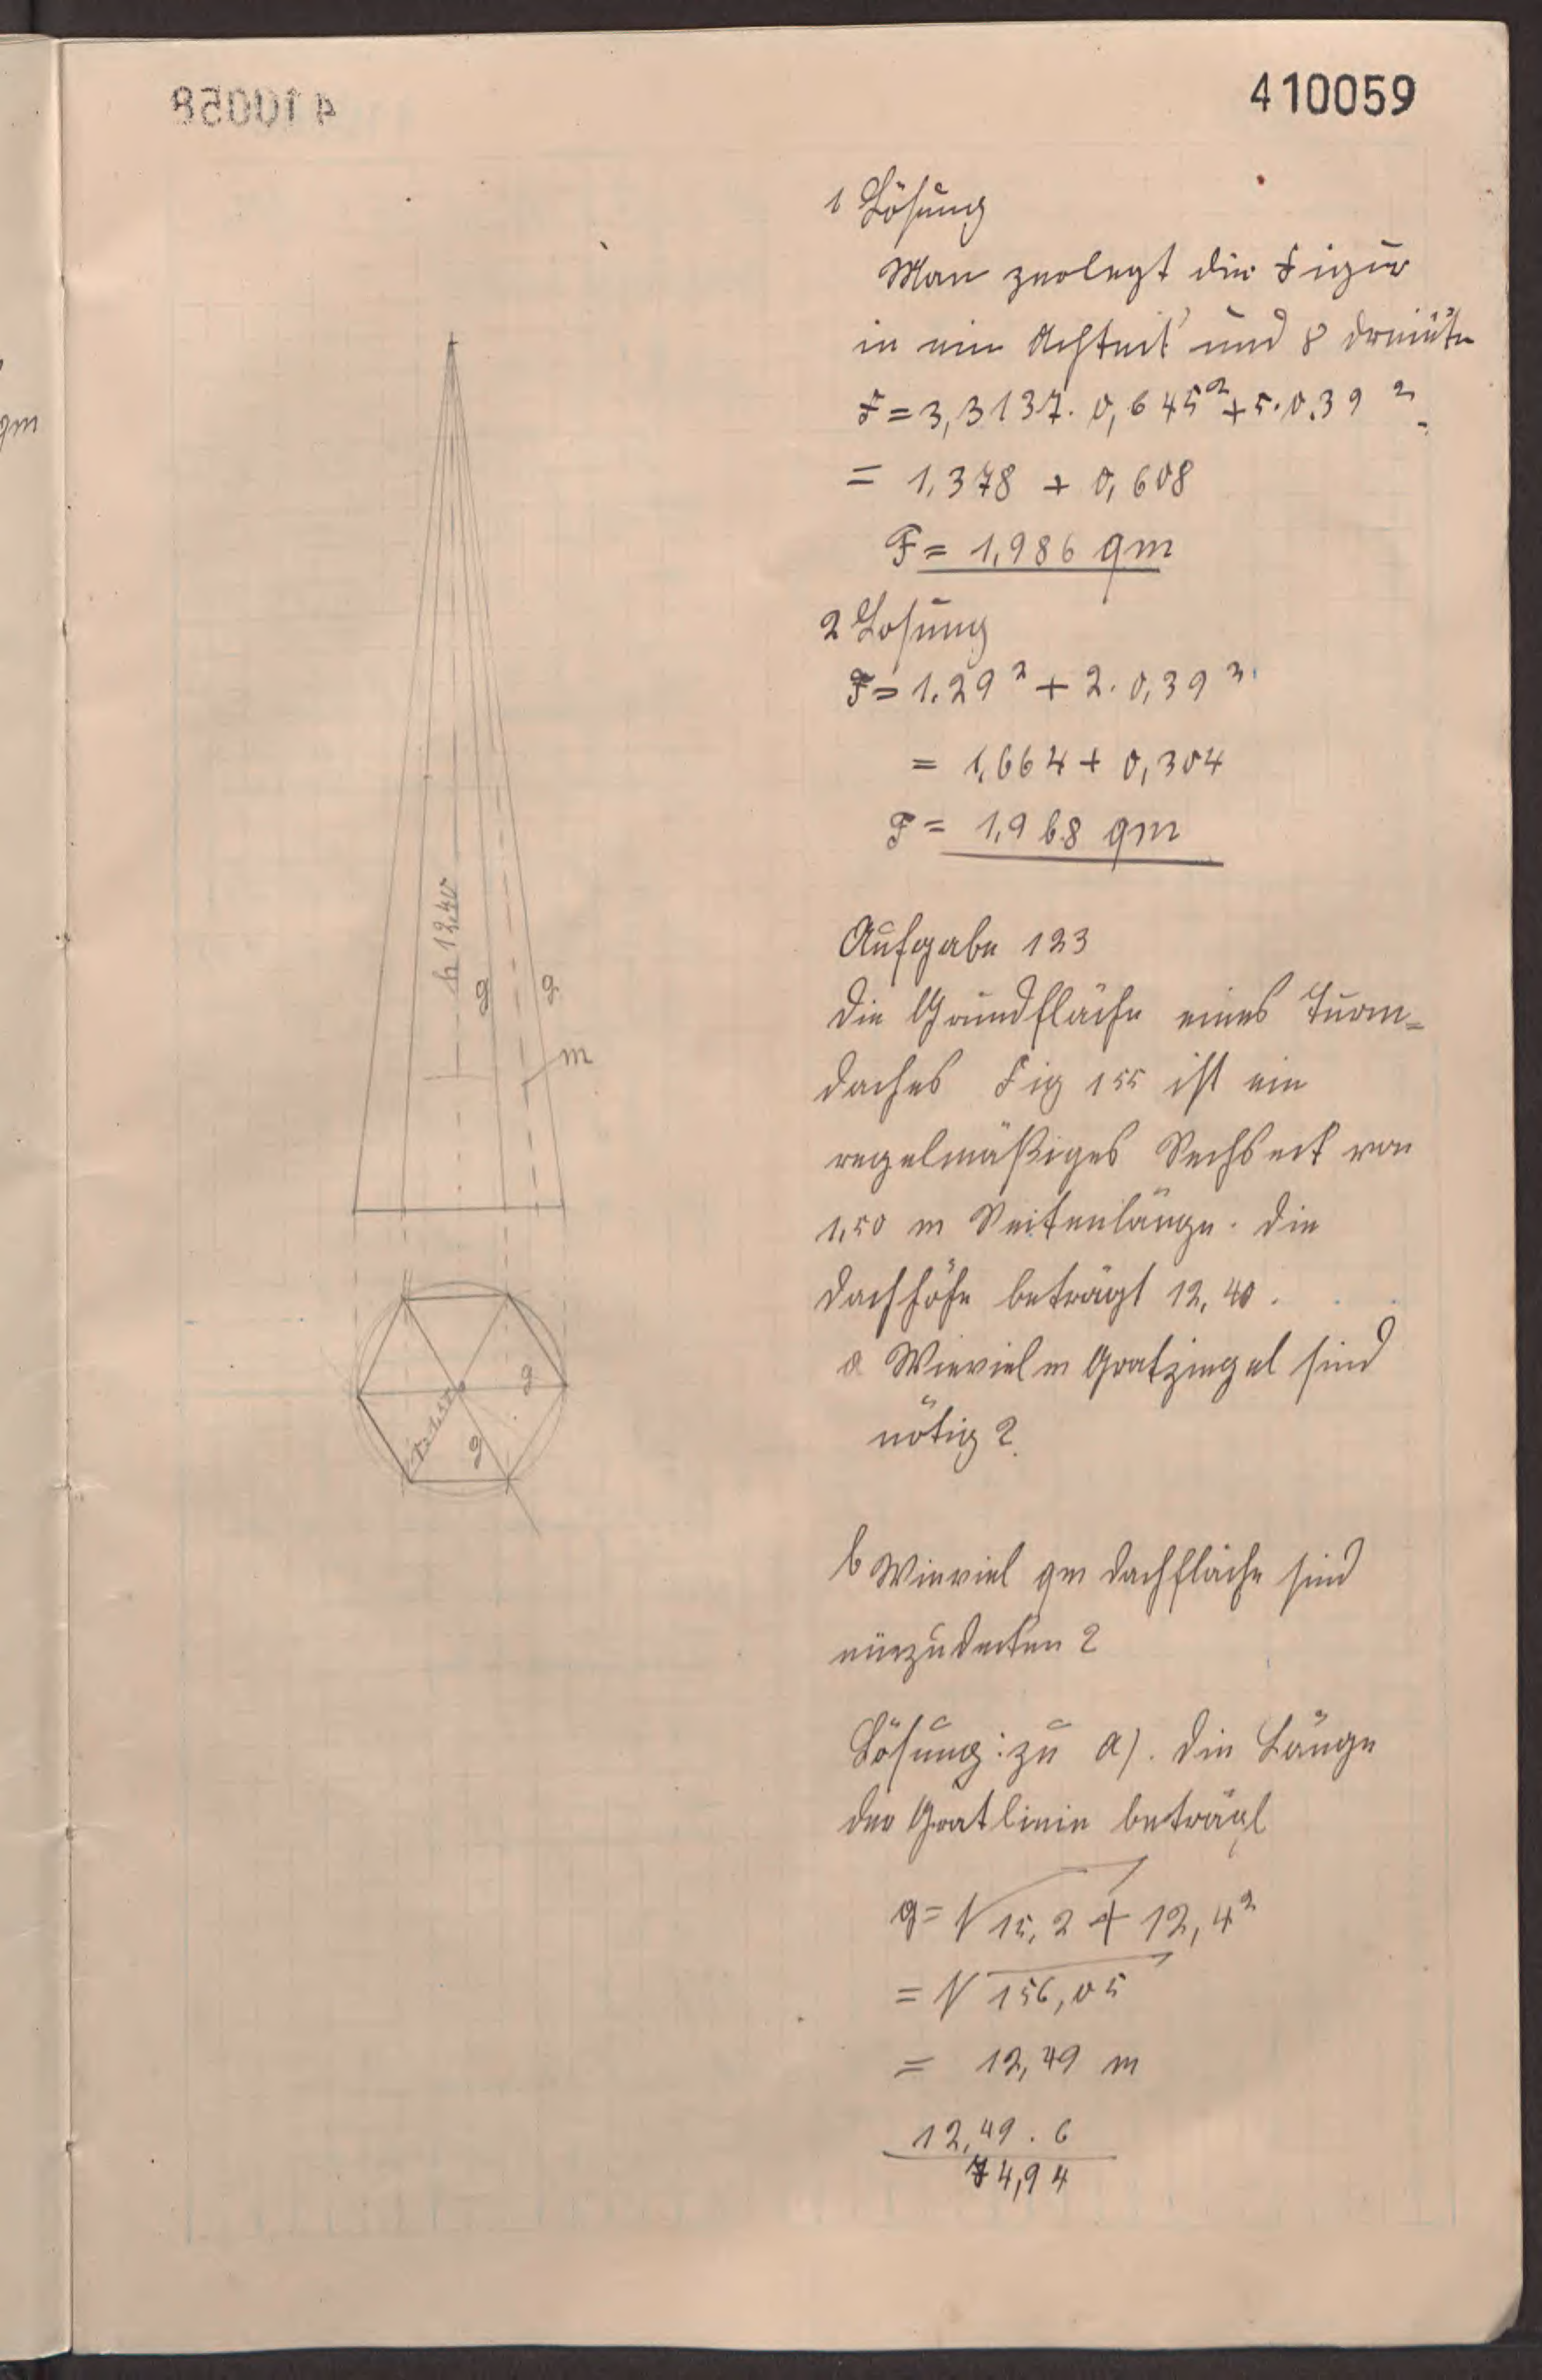 410059
1 Lösung
Man zerlegt die Figur
in ein Achteck und 8 Dreiecke
F = 3,3137 · 0,645² + 5 · 0,39²
= 1,378 + 0,608
F = 1,986 qm
2 Losung
F = 1.29² + 2 · 0,39²
= 1,664 + 0,304
F = 1,968 qm
Aufgabe 123
Die Grundfläche eines Turm=
daches Fig 155 ist ein
regelmäßiges Sechseck von
1,50 m Seitenlänge. Die
Dachhöhe beträgt 12,40.
a Wieviel m Gratziegel sind
nötig?
b Wieviel qm Dachfläche sind
einzudecken?
Lösung: zu a). Die Länge
der Gratlinie beträgt
g = √15,2 + 12,4²
= √156,05
= 12,49 m
12,49 . 6
74,94
h 12,40
g
g
m
g
g
qm
410058